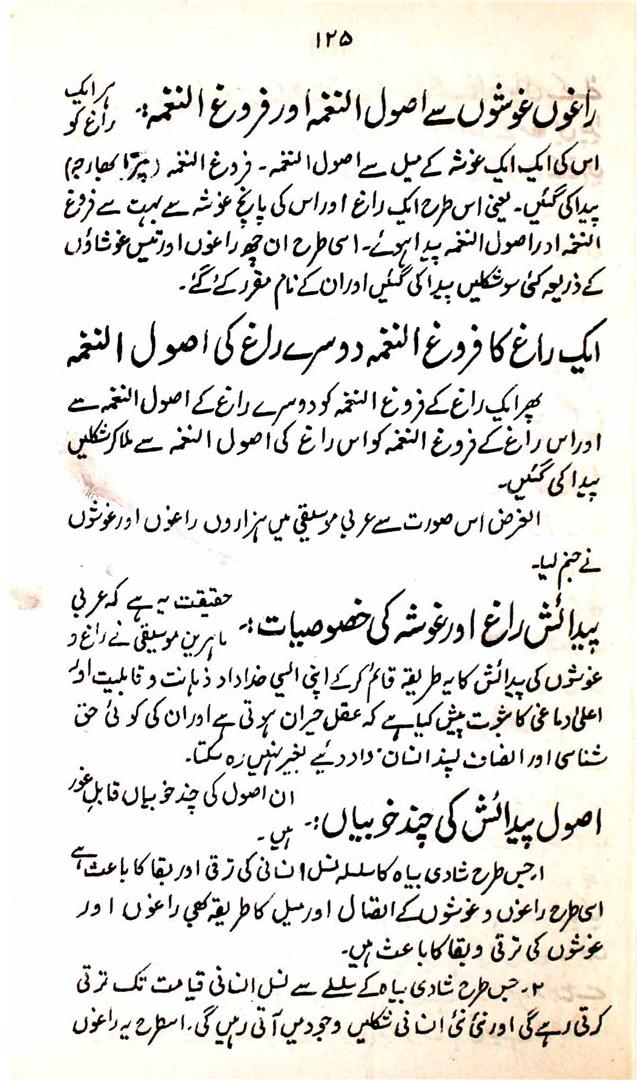 ۱۲۵
راغوں غوشوں سے اصول النغمہ اور فروغ النغمہ:۔ ہر ایک راغ کو
اس کی ایک ایک غوشہ کے میل سے اصول النغمہ۔ فروغ النغمہ (پترا بھارجہ)
پیدا کی گئیں۔ یعنی اس طرح ایک راغ اور اس کی پانچ غوشہ سے بہت سے فروغ
النغمہ اور اصول النغمہ پیدا ہوئے۔ اسی طرح ان چھ راغوں اور تیس غوشاؤں
کے ذریعہ کئی سو شکلیں پیدا کی گئیں اور ان کے نام مقرر کئے گئے۔
ایک راغ کا فروغ النغمہ دوسرے راغ کی اصول النغمہ
پھر ایک راغ کے فروغ النغمہ کو دوسرے راغ کے اصول النغمہ سے
اور اس راغ کے فروغ النغمہ کو اس راغ کی اصول النغمہ سے ملا کر شکلیں
پیدا کی گئیں۔
الغرض اس صورت سے عربی موسیقی میں ہزاروں راغوں اور غوشوں
نے جنم لیا۔
پیدائش راغ اور غوشہ کی خصوصیات:۔ حقیقت یہ ہے کہ عربی ماہرین موسیقی نے راغ و
غوشوں کی پیدائش کا یہ طریقہ قائم کر کے اپنی ایسی خداداد ذہانت و قابلیت اور
اعلیٰ دماغی کا ثبوت پیش کیا ہے کہ عقل حیران ہوتی ہے اور ان کی کوئی حق
شناسی اور انصاف پسند انسان داد دئیے بغیر نہیں رہ سکتا۔
اصول پیدائش کی چند خوبیاں:۔ ان اصول کی چند خوبیاں قابل غور ہیں۔
۱۔ جس طرح شادی بیاہ کا سلسلہ نسل انسانی کی ترقی اور بقا کا باعث ہے
اسی طرح راغوں و غوشوں کے اتصال اور میل کا طریقہ بھی راغوں اور
غوشوں کی ترقی و بقا کا باعث ہیں۔
۲۔ جس طرح شادی بیاہ کے سلسلے سے نسل انسانی قیامت تک ترقی
کرتی رہے گی اور نئی نئی انسانی شکلیں وجود میں آتی رہیں گی۔ اسطرح یہ راغوں